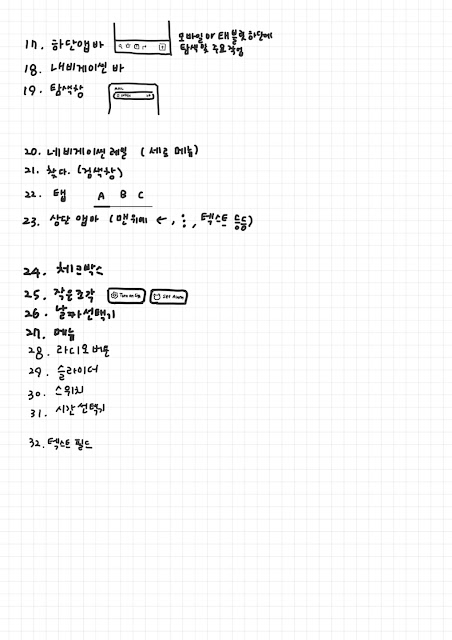 17. 하단앱바
모바일 or 태블릿 하단에
탐색 및 주요작업
18. 내비게이션 바
19. 탐색창
20. 네비게이션 레일 (세로 메뉴)
21. 찾다. (검색창)
22. 탭 A B C
23. 상단 앱바 (맨위에 ←, ⋮, 텍스트 등등)
24. 체크박스
25. 작은조각 Turn on Set Alarm
26. 날짜선택기
27. 메뉴
28. 라디오버튼
29. 슬라이더
30. 스위치
31. 시간선택기
32. 텍스트 필드